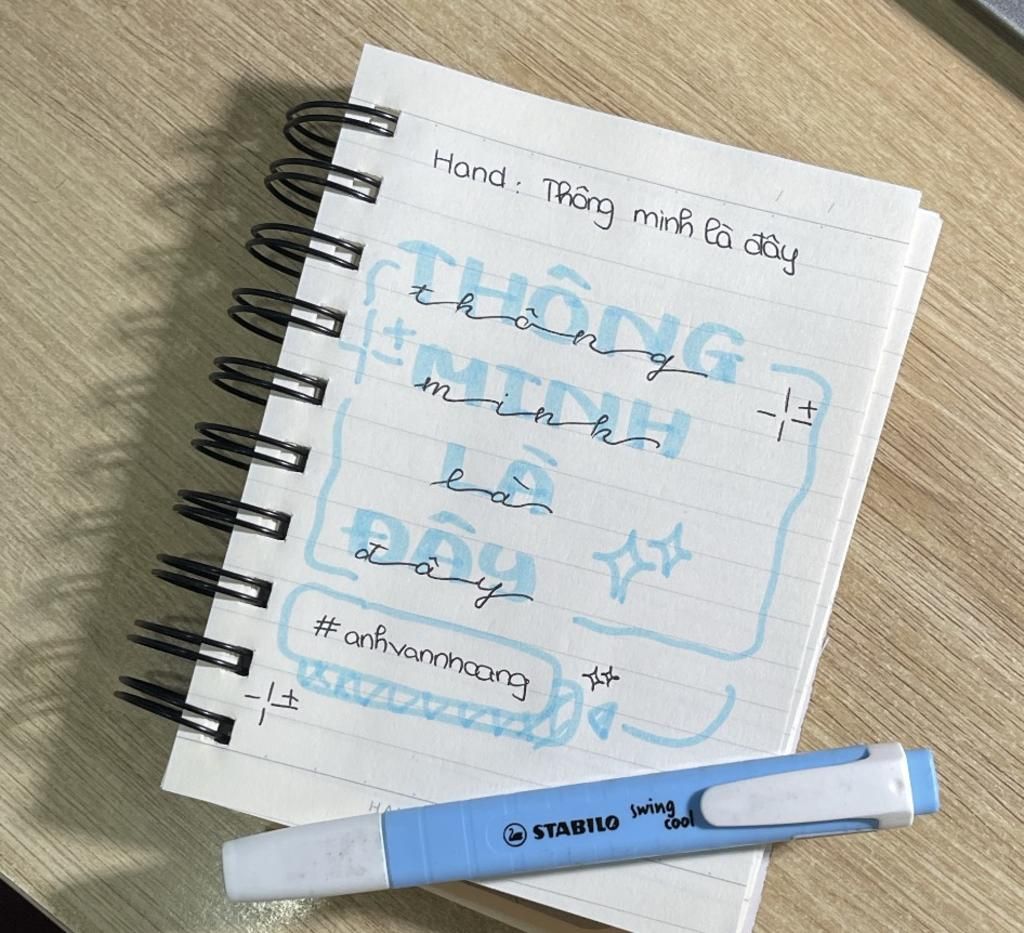 Hand: Thông minh là đây
THÔNG
thông
MINH
minh
LÀ
là
ĐÂY
đây
#anhvannhoang
STABILO swing cool